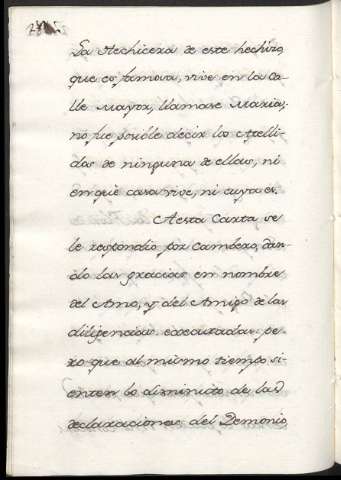 La Hechicera de este hechizo,
que es famosa, vive en la Ca-
lle Mayor, llamase Maria;
no fue posible decir los Apelli-
dos de ninguna de ellas, ni
en que casa vive, ni cuya es.
A esta Carta se
le respondio por Cambero, dan-
dolo las gracias en nombre
del Amo, y del Amigo de las
diligencias executadas: pe-
ro que al mismo tiempo si-
enten lo diminuto de las
declaraciones del Demonio